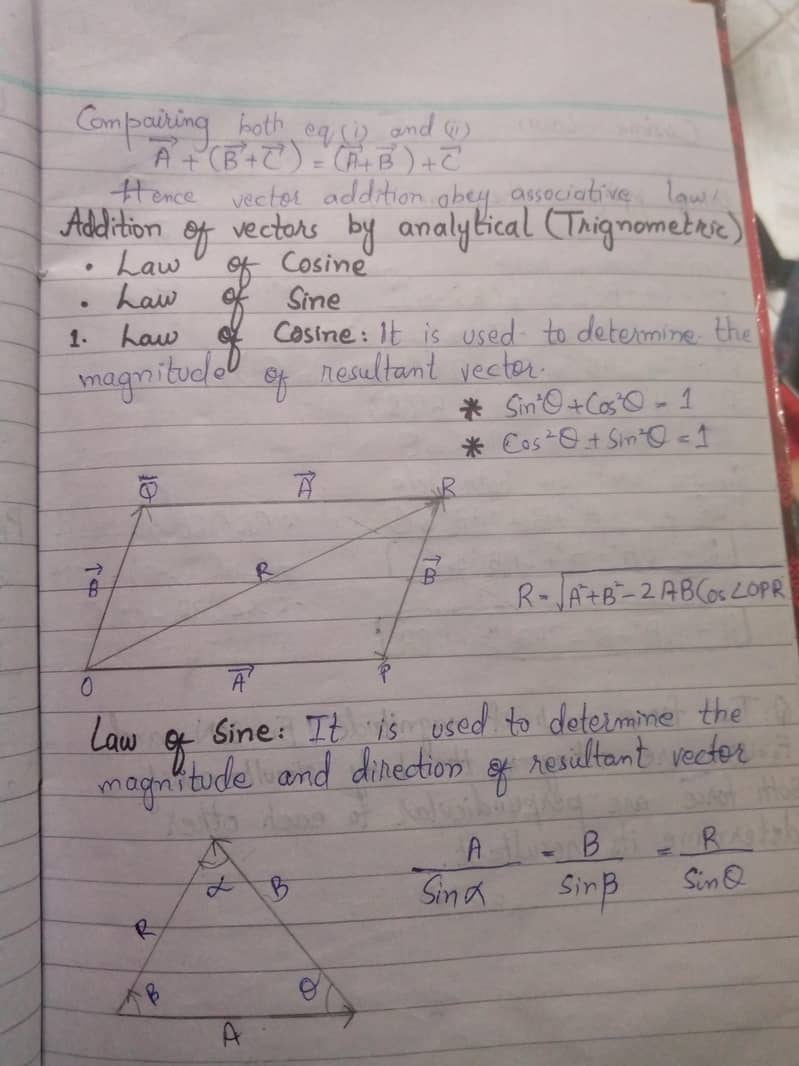 Compairing both eq(i) and (ii)
A⃗ + (B⃗ + C⃗) = (A⃗ + B⃗) + C⃗
Hence vector addition obey associative law.
Addition of vectors by analytical (Trignometric)
• Law of Cosine
• Law of Sine
1. Law of Cosine: It is used to determine the
magnitude of resultant vector.
* Sin²θ + Cos²θ = 1
* Cos²θ + Sin²θ = 1
Q A⃗ R
B⃗ R B⃗
R = √A²+B²-2ABCos∠OPR
O A⃗ P
Law of Sine: It is used to determine the
magnitude and direction of resultant vector
A/Sinα = B/Sinβ = R/Sinθ
α B
R
β θ
A